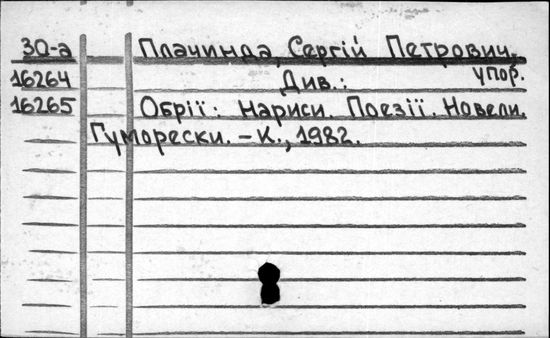 30-а Плачинда, Сергій Петрович, упор.
16264 Див.:
16265 Обрії: Нариси. Поезії. Новели.
Гуморески. – К., 1982.